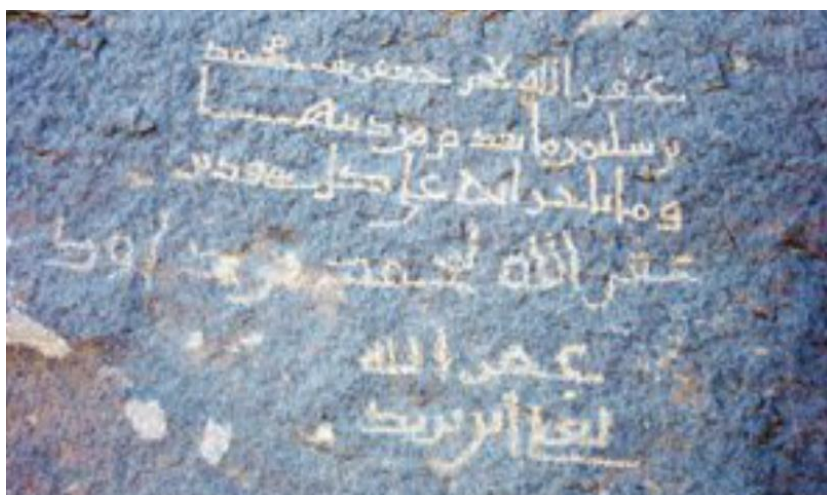 غفر الله لا جعفر بن محمد
بن سليمن ما تقدم من ذنبه
وما تاخر انه على كل شي قدير
غفر الله لمحمد بن
غفر الله
بن يزيد